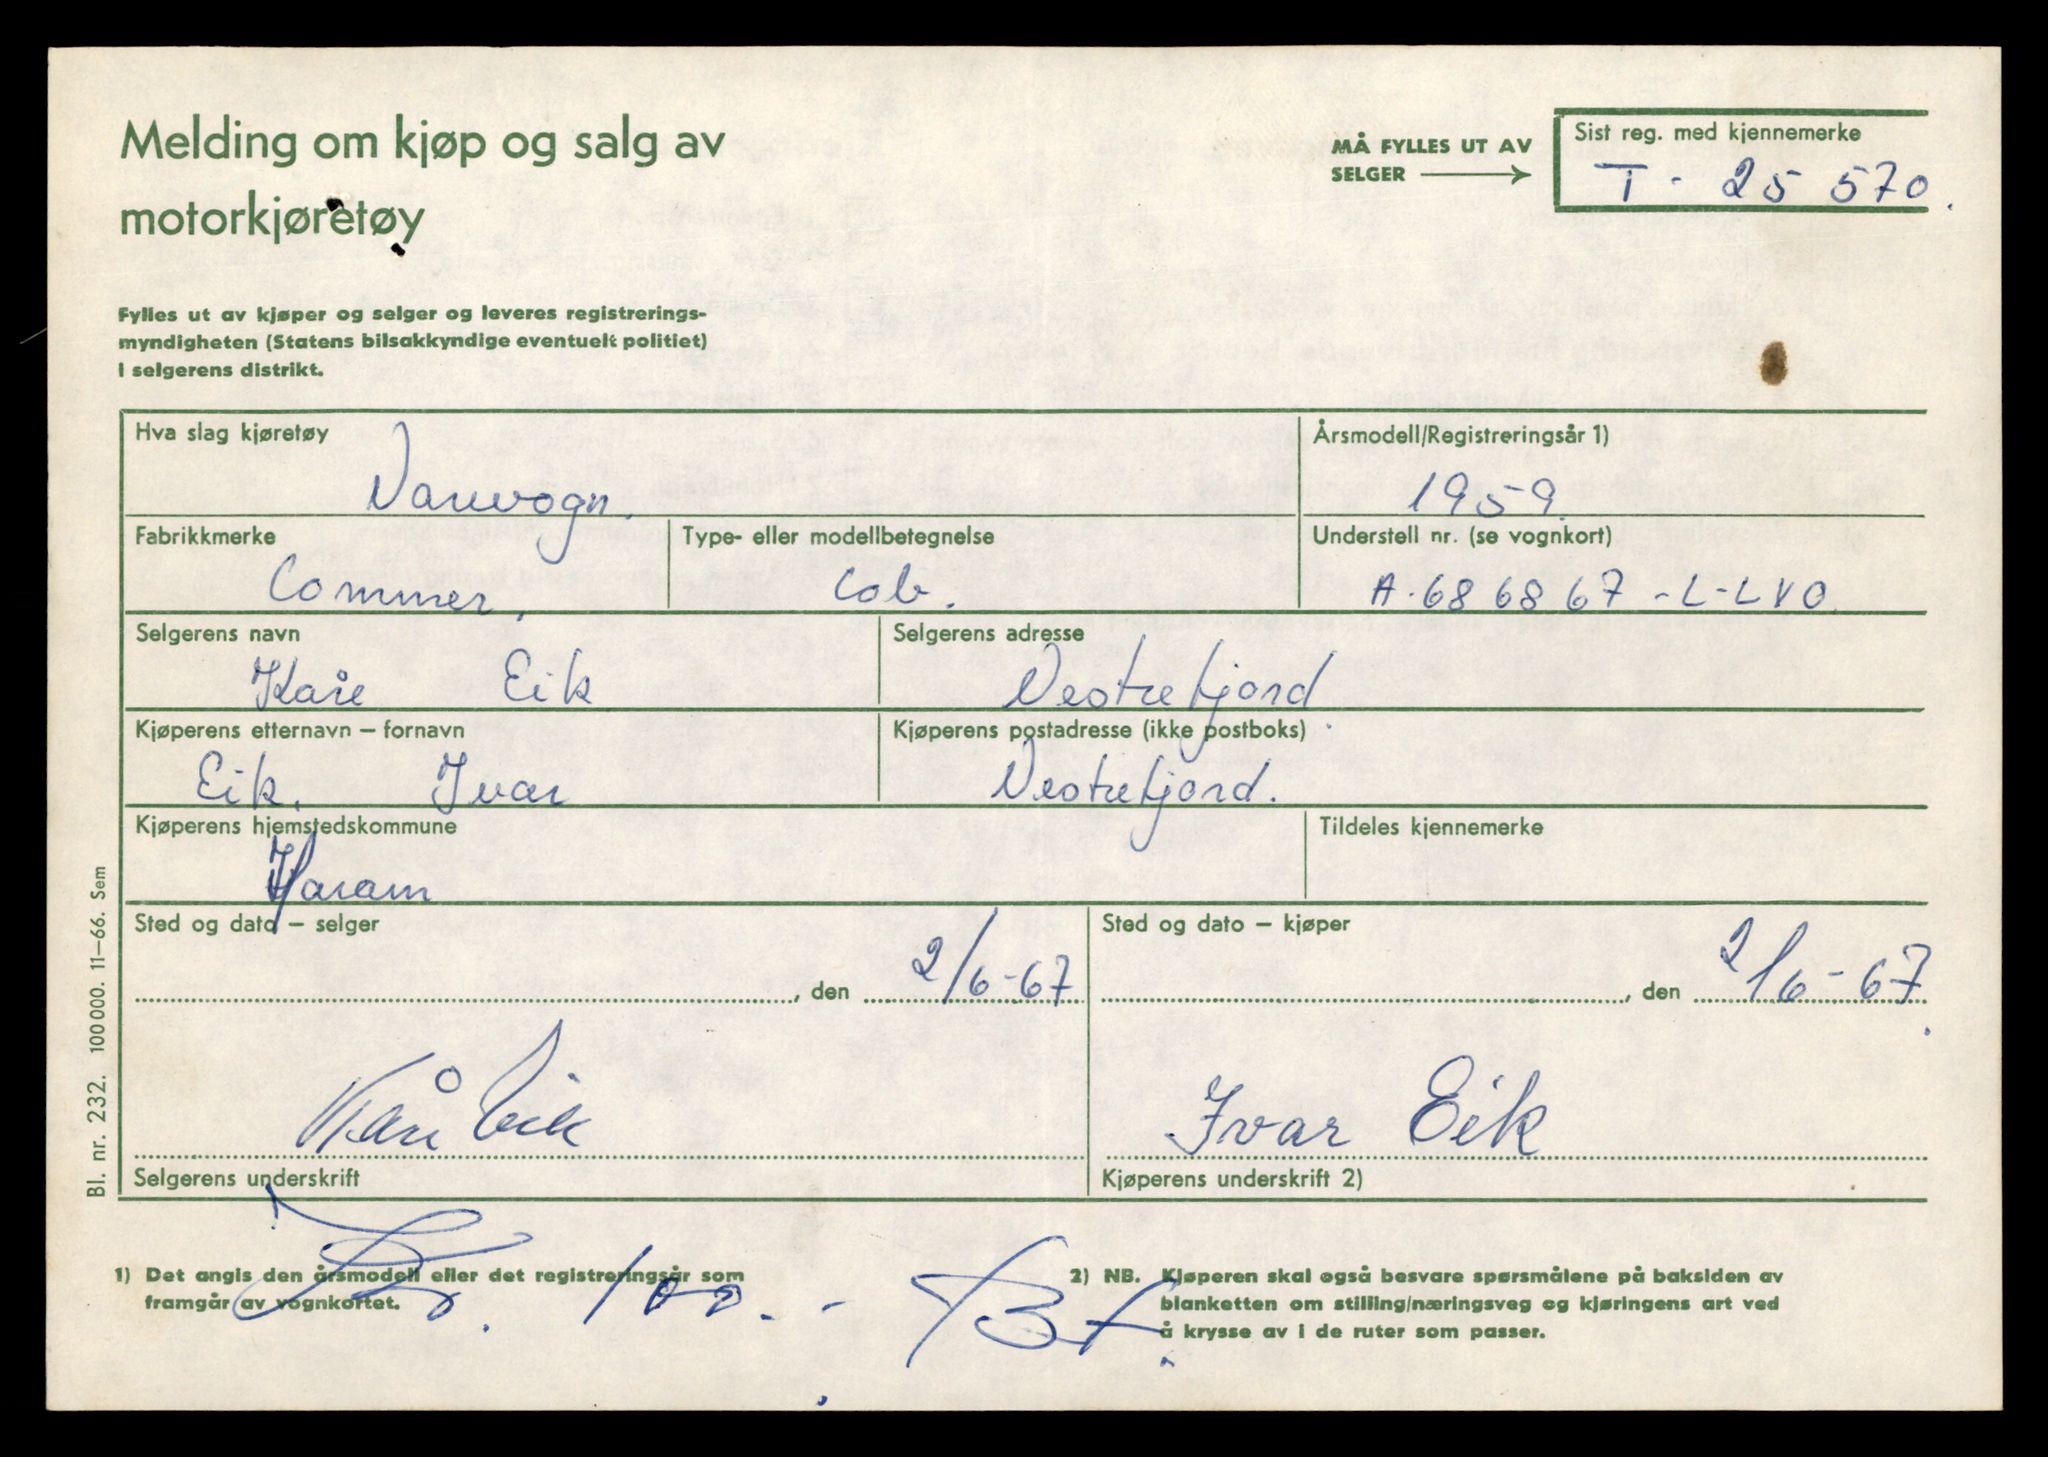 Melding om kjøp og salg av
motorkjøretøy
MÅ FYLLES UT AV
SELGER
Sist reg. med kjennemerke
T - 25 570.
Fylles ut av kjøper og selger og leveres registrerings-
myndigheten (Statens bilsakkyndige eventuelt politiet)
i selgerens distrikt.
Hva slag kjøretøy
Varevogn.
Årsmodell/Registreringsår 1)
1959.
Fabrikkmerke
Commer.
Type- eller modellbetegnelse
Cob.
Understell nr. (se vognkort)
A.68 68 67 -L-LVO.
Selgerens navn
Kåre Eik
Selgerens adresse
Vestrefjord.
Kjøperens etternavn – fornavn
Eik. Ivar
Kjøperens postadresse (ikke postboks)
Vestrefjord.
Kjøperens hjemstedskommune
Haram
Tildeles kjennemerke
Sted og dato – selger
, den 2/6-67
Sted og dato – kjøper
, den 2/6-67.
Kåre Eik
Selgerens underskrift
Ivar Eik
Kjøperens underskrift 2)
Bl. nr. 232. 100 000. 11–66. Sem
100.-
1) Det angis den årsmodell eller det registreringsår som
framgår av vognkortet.
2) NB. Kjøperen skal også besvare spørsmålene på baksiden av
blanketten om stilling/næringsveg og kjøringens art ved
å krysse av i de ruter som passer.